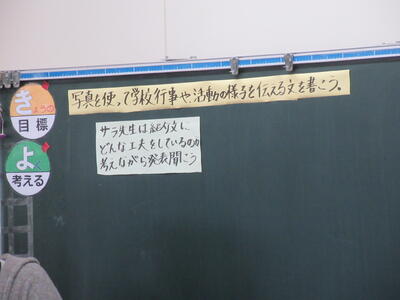 写真を使って学校行事や、活動の様子を伝える文を書こう。
きょうの
目標
サラ先生は紹介文に
どんな工夫をしているのか
考えながら発表聞こう
よく
考える